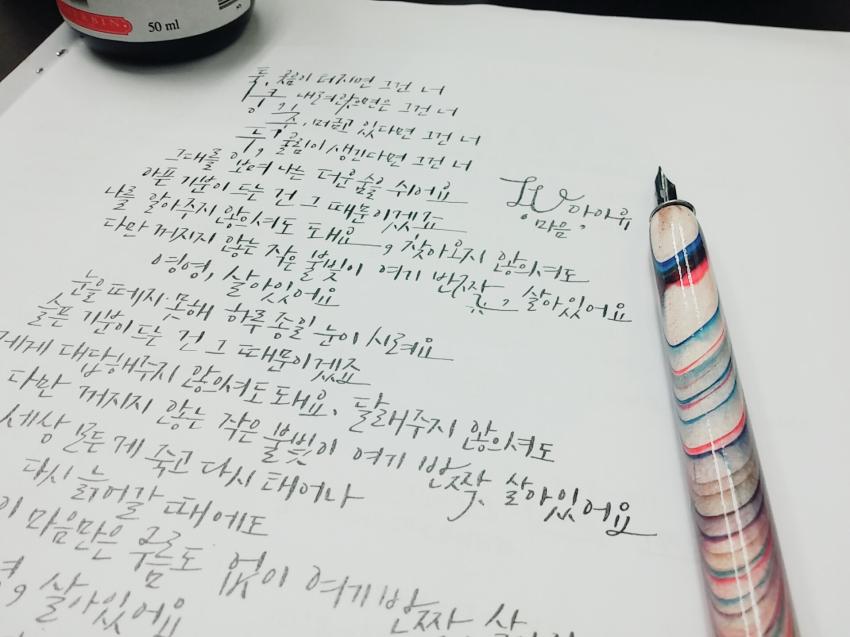 ERBIN.
50 ml
툭, 구름이 터지면 그건 너
쿵, 내려앉으면은 그건 너
축, 머금고 있다면 그건 너
둑, 울림이 생긴다면 그건 너
그대를 보며 나는 더운 숨을 쉬어요
아픈 기분이 드는 건 그 때문이겠죠
나를 알아주지 않으셔도 돼요, 찾아오지 않으셔도
다만 꺼지지 않는 작은 불빛이 여기 반짝 살아있어요
영영, 살아있어요
아이유
마음
눈을 떼지 못해 하루종일 눈이 시려요
슬픈 기분이 드는 건 그 때문이겠죠
제게 대답해주지 않으셔도 돼요, 달래주지 않으셔도
다만 꺼지지 않는 작은 불빛이 여기 반짝 살아있어요
세상 모든 게 죽고 다시 태어나
다시 늙어갈 때에도
이 마음만은 구름도 없이 여기 반짝 살
살아있어요